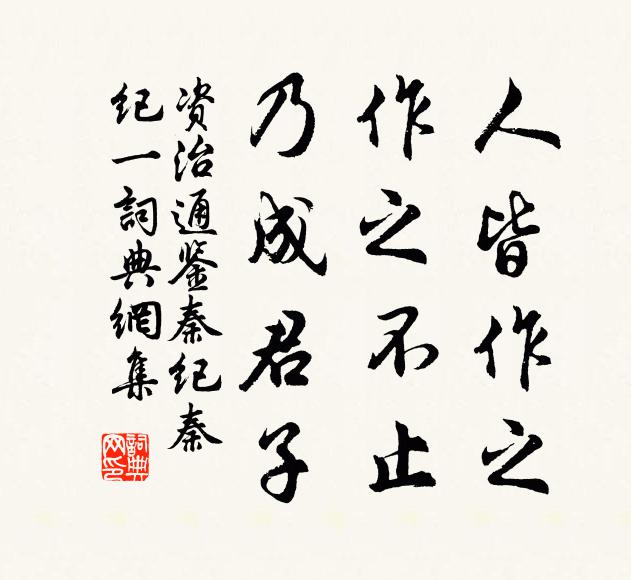 人皆作之
作之不止
乃成君子
资治通鉴秦纪秦
纪一詞典網集
詞典网印